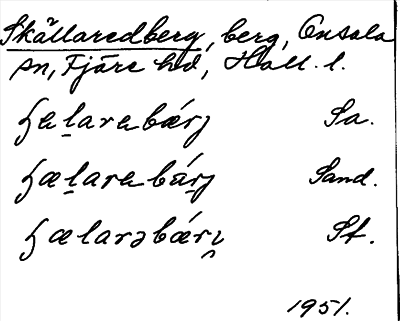 Skällaredberg, berg, Onsala
sn, Fjäre hd, Hall. l.
ɧæḻarabærj Sa.
ɧæḻarabærj Sand.
ɧælarəbærj St.
1951.